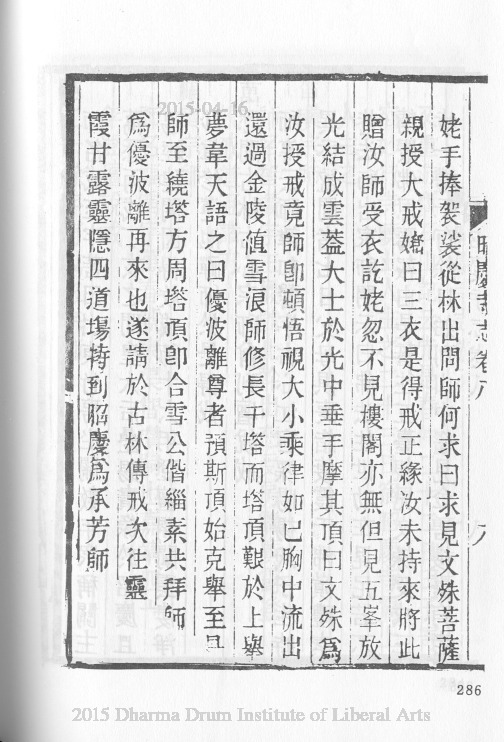 昭慶寺志卷八
八
姥手捧袈裟從林出問師何求曰求見文殊菩薩
親授大戒姥曰三衣是得戒正緣汝未持來將此
贈汝師受衣訖姥忽不見樓閣亦無但見五峯放
光結成雲蓋大士於光中垂手摩其頂曰文殊爲
汝授戒竟師卽頓悟視大小乘律如已胸中流出
還過金陵値雪浪師修長干塔而塔頂艱於上舉
夢韋天語之曰優波離尊者預斯頂始克舉至旦
師至繞塔方周塔頂卽合雪公偕緇素共拜師
爲優波離再來也遂請於古林傳戒次往靈
霞甘露靈隱四道塲特到昭慶爲承芳師
286
2015-04-16
2015 Dharma Drum Institute of Liberal Arts